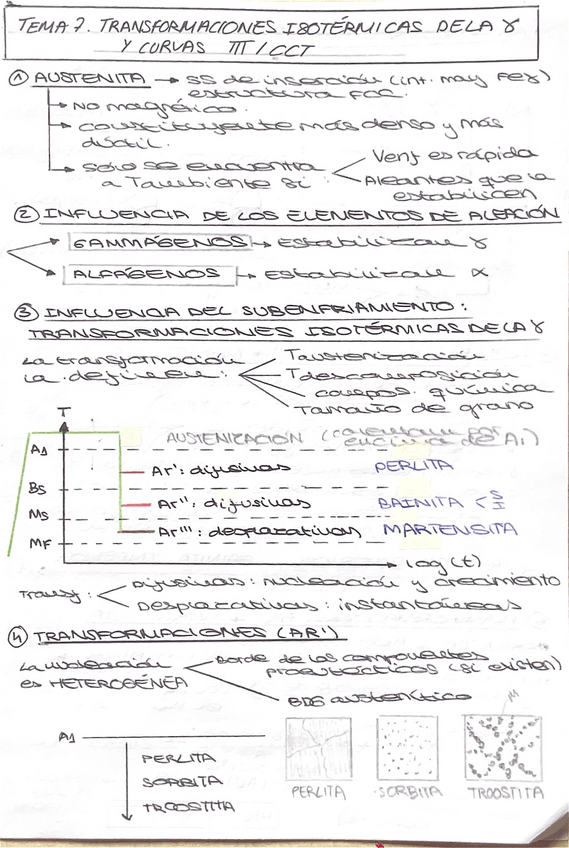 TEMA 7. TRANSFORMACIONES ISOTÉRMICAS DE LA γ
Y CURVAS TTT/CCT
① AUSTENITA → SS de inserción (int. muy Feγ)
estructura FCC.
→ No magnético.
→ constituyente más denso y más
dúctil.
→ Solo se encuentra
a Tambiente si:
Venf es rápida
Aleantes que la
estabilicen
② INFLUENCIA DE LOS ELEMENTOS DE ALEACIÓN
GAMMÁGENOS → Estabilizan γ
ALFÁGENOS → Estabilizan α
③ INFLUENCIA DEL SUBENFRIAMIENTO:
TRANSFORMACIONES ISOTÉRMICAS DE LA γ
La transformación
la definen:
Taustenización
Tdescomposición
compos. química
Tamaño de grano
T
AUSTENIZACIÓN (calentam por
encima de A1)
A1
Ar': difusivas PERLITA
BS
Ar'': difusivas BAINITA < S I
MS
Ar''': desplazativas MARTENSITA
MF
log(t)
Transf:
Difusivas: nucleación y crecimiento
Desplazativas: instantáneas
④ TRANSFORMACIONES (AR')
La nucleación
es HETEROGÉNEA
Borde de los componentes
proeutécticos (si existen)
BDG austenítico
A1
PERLITA
SORBITA
TROOSTITA
M
PERLITA SORBITA TROOSTITA